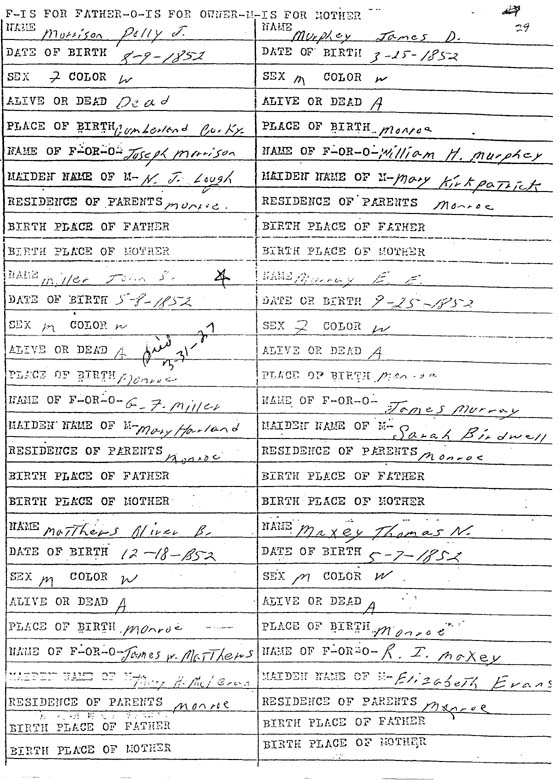 F-IS FOR FATHER-O-IS FOR OWNER-M-IS FOR MOTHER
29
NAME Morrison Polly J.
DATE OF BIRTH 8-9-1852
SEX F COLOR W
ALIVE OR DEAD Dead
PLACE OF BIRTH Cumberland Co. Ky.
NAME OF F-OR-O- Joseph Morrison
MAIDEN NAME OF M- N. J. Lough
RESIDENCE OF PARENTS Monroe.
BIRTH PLACE OF FATHER
BIRTH PLACE OF MOTHER
NAME Miller John S.
DATE OF BIRTH 5-8-1852
SEX M COLOR W
ALIVE OR DEAD A died 3-31-27
PLACE OF BIRTH Monroe
NAME OF F-OR-O- G. F. Miller
MAIDEN NAME OF M- Mary Harland
RESIDENCE OF PARENTS Monroe
BIRTH PLACE OF FATHER
BIRTH PLACE OF MOTHER
NAME Matthews Oliver B.
DATE OF BIRTH 12-18-1852
SEX M COLOR W
ALIVE OR DEAD A
PLACE OF BIRTH Monroe
NAME OF F-OR-O- James W. Matthews
MAIDEN NAME OF M-
RESIDENCE OF PARENTS Monroe
BIRTH PLACE OF FATHER
BIRTH PLACE OF MOTHER
NAME Murphey James D.
DATE OF BIRTH 3-25-1852
SEX M COLOR W
ALIVE OR DEAD A
PLACE OF BIRTH Monroe
NAME OF F-OR-O- William H. Murphey
MAIDEN NAME OF M- Mary Kirkpatrick
RESIDENCE OF PARENTS Monroe
BIRTH PLACE OF FATHER
BIRTH PLACE OF MOTHER
NAME Murray E. E.
DATE OF BIRTH 9-25-1852
SEX F COLOR W
ALIVE OR DEAD A
PLACE OF BIRTH Monroe
NAME OF F-OR-O- James Murray
MAIDEN NAME OF M- Sarah Birdwell
RESIDENCE OF PARENTS Monroe
BIRTH PLACE OF FATHER
BIRTH PLACE OF MOTHER
NAME Maxey Thomas N.
DATE OF BIRTH 5-7-1852
SEX M COLOR W
ALIVE OR DEAD A
PLACE OF BIRTH Monroe
NAME OF F-OR-O- R. I. Maxey
MAIDEN NAME OF M- Elizabeth Evans
RESIDENCE OF PARENTS Monroe
BIRTH PLACE OF FATHER
BIRTH PLACE OF MOTHER